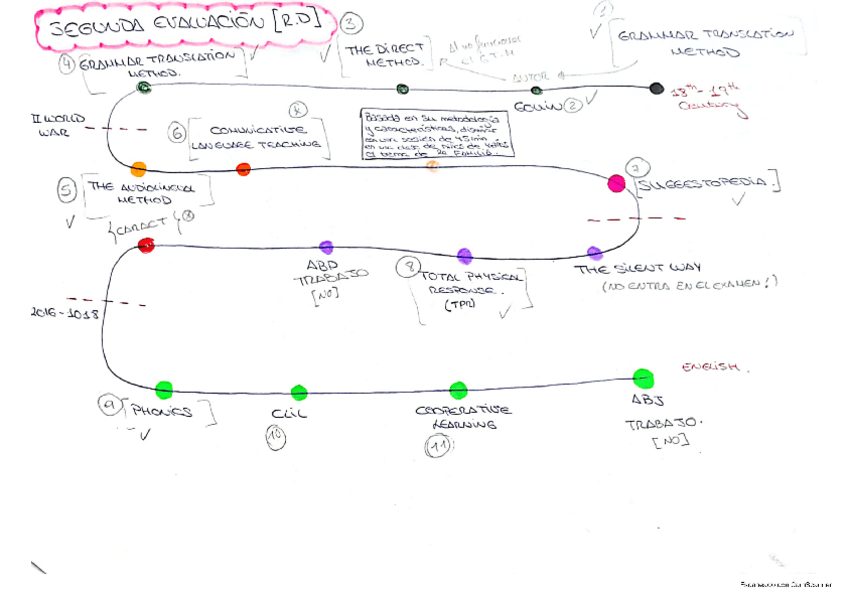 SEGUNDA EVALUACIÓN [R.D]
③
①
④ GRAMMAR TRANSLATION
METHOD.
THE DIRECT
METHOD.
Al no funcionar
el G.T.M
GRAMMAR TRANSLATION
METHOD
AUTOR
GOUIN ②
18th - 19th
Century
II WORLD
WAR
⑥
COMUNICATIVE
LANGUAGE TEACHING
Basado en su metodología
y características, diseñar
en una sesión de 45 min
en una clase de niños de 4 años
el tema de la Familia.
⑤
THE AUDIOLINGUAL
METHOD
CARACT
⑦
[SUGGESTOPEDIA.]
ABP
TRABAJO
[NO]
⑧ TOTAL PHYSICAL
RESPONSE.
(TPR)
THE SILENT WAY
(NO ENTRA EN EL EXAMEN!)
2016 - 1018
ENGLISH.
⑨ [PHONICS]
CLIL
⑩
COOPERATIVE
LEARNING
⑪
ABJ
TRABAJO.
[NO]